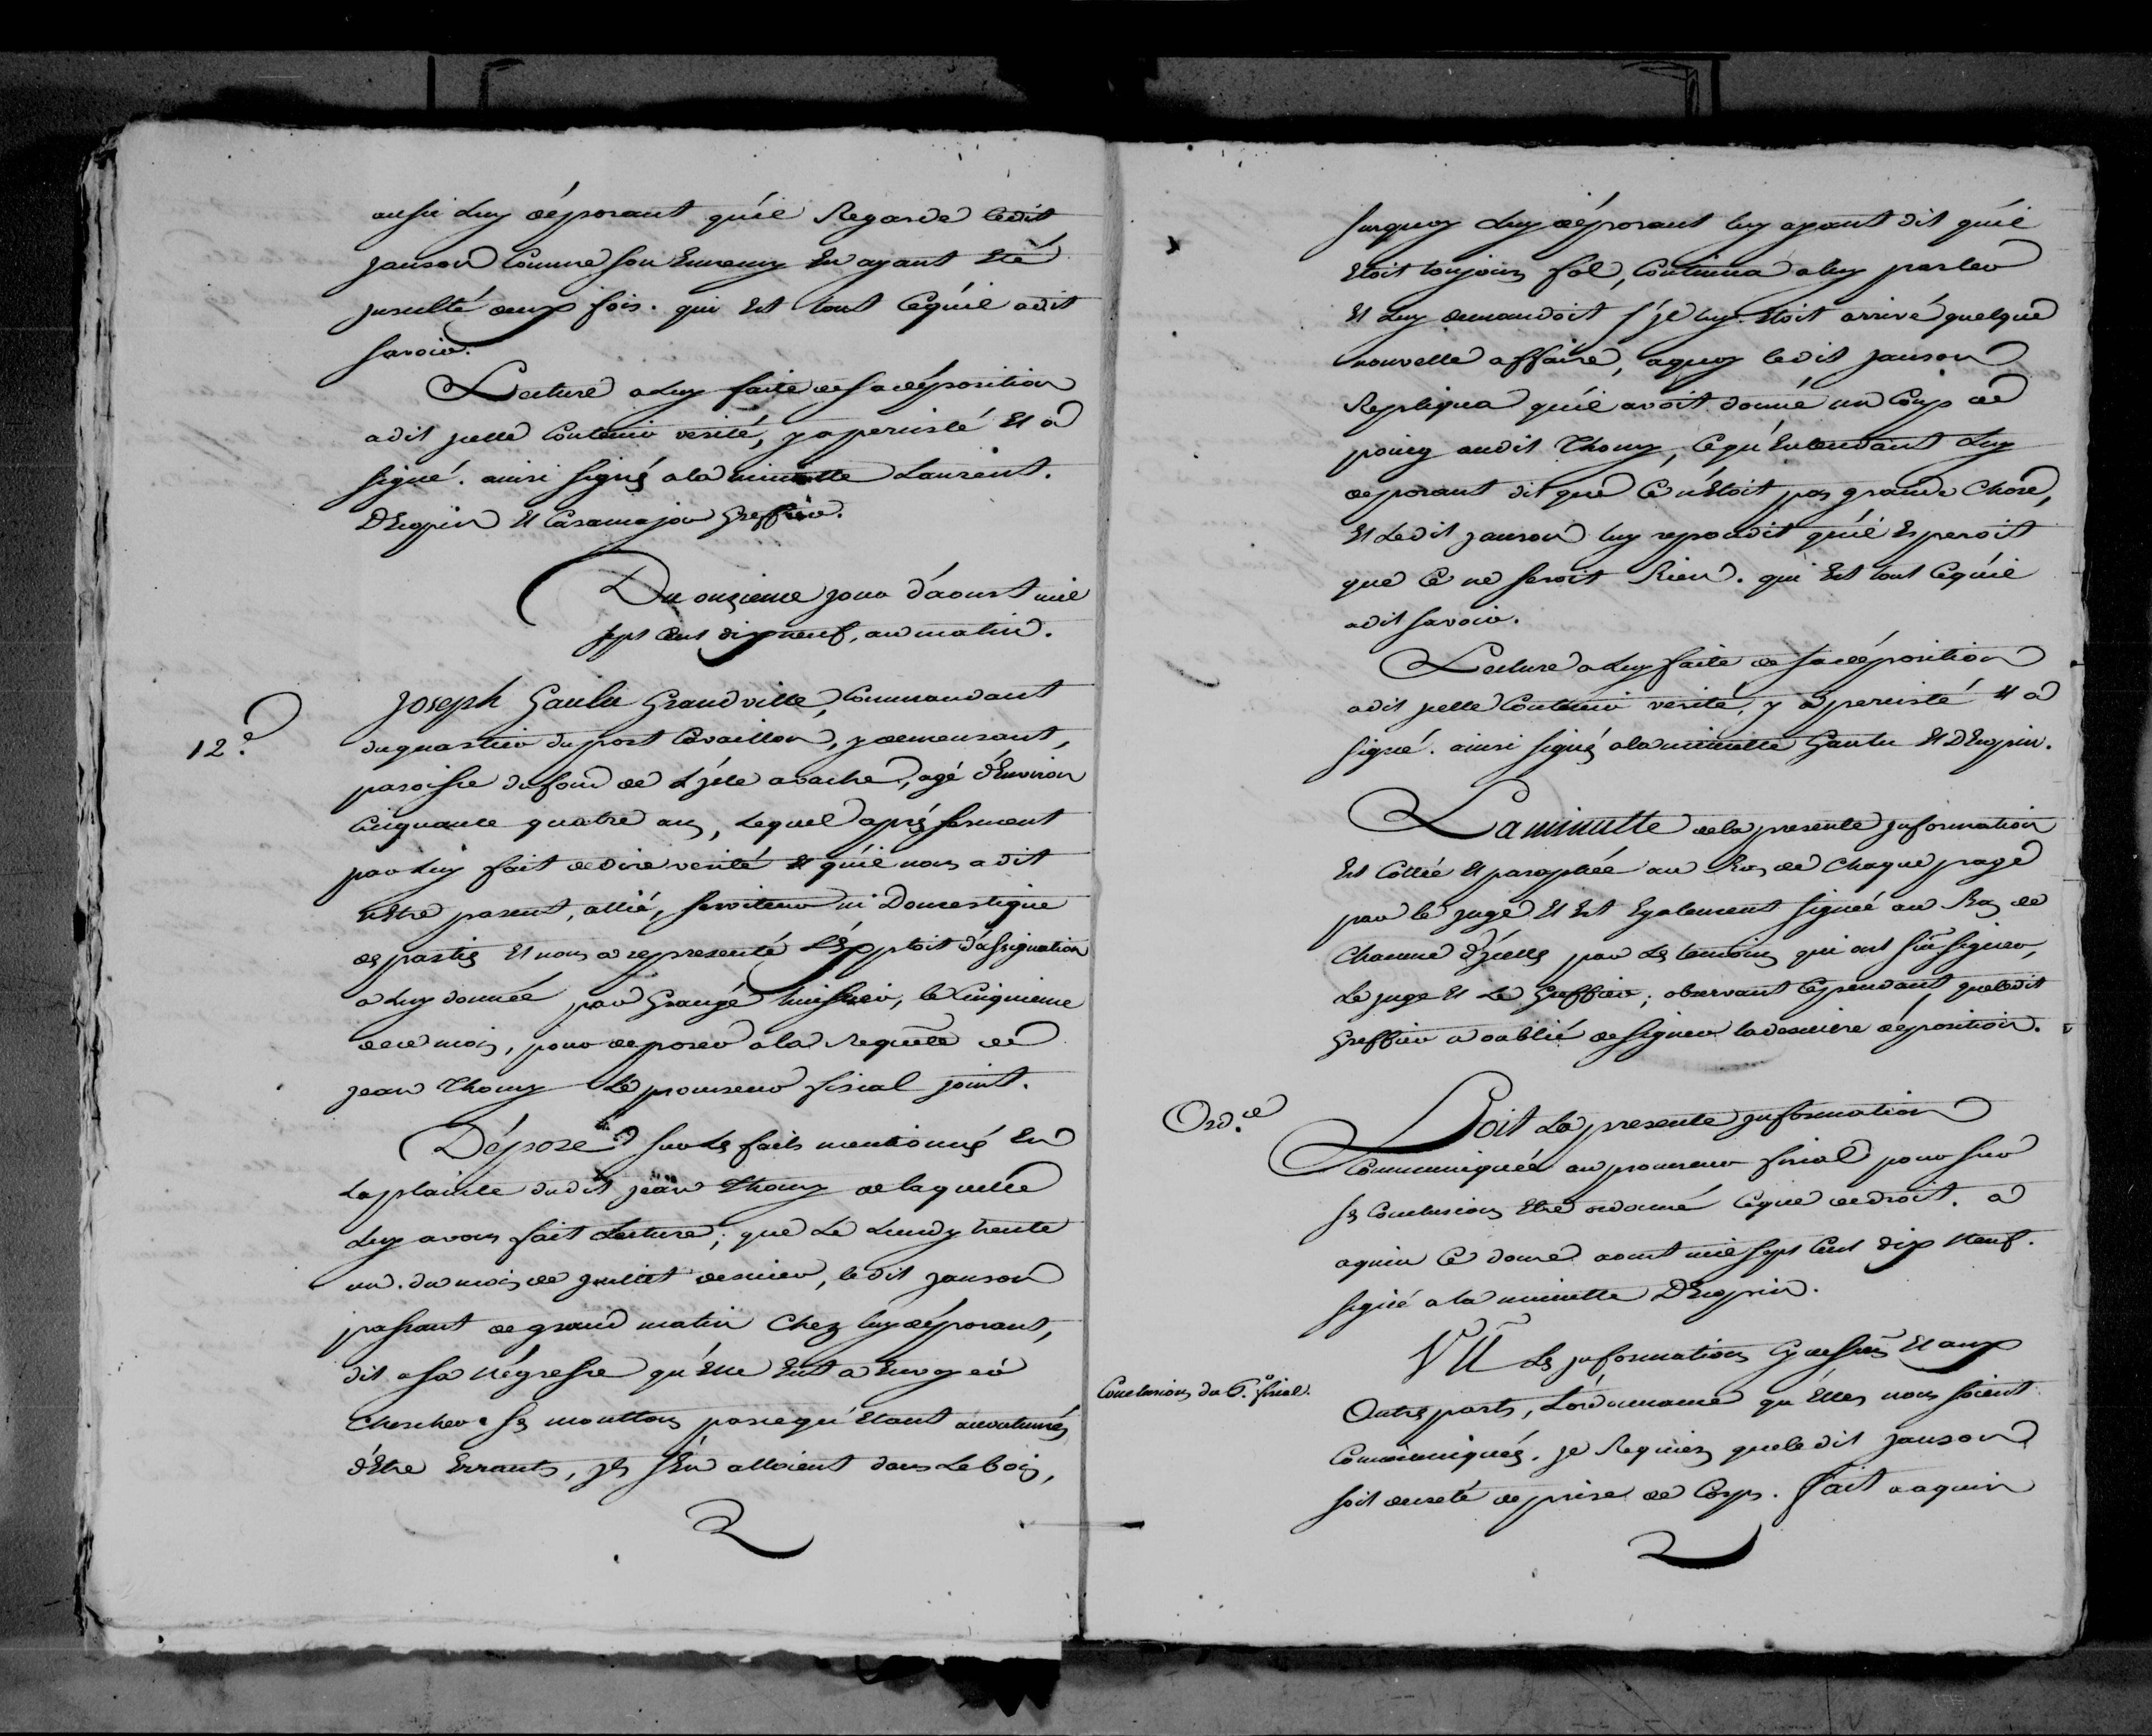 aussi Luy déposant qu'il Regarde ledit
Janson Comme son Ennemy En ayant Eté
Insulté deux fois. qui Est tout Cequ'il adit
savoir.
Lecture aluy faite desa déposition
adit jcelle Contenir verité, y a persisté Et a
signé. ainsi signés ala minutte Laurent.
DEugpin Et Casamajor Greffier.
Du onzieme jour d'aoust mil
sept Cent dix neuf, au matin.
12.e
Joseph Gaulu Grandville, Commandant
duquartier duport Cavaillon, y demeurant,
paroisse dufond de L'jsle avache, agé d'Environ
Cinquante quatre ans, Lequel après serment
par luy fait dedire verité Et qu'il nous adit
n'Etre parent, allié, serviteur ni Domestique
des parties Et nous a representé L'Exploit d'assignation
a Luy donnée par Grangé huissier, le Cinquieme
dece mois, pour déposer ala Requête de
jean Thomy Le procureur fiscal joint.
Dépose sur Les faits mentionnés En
Laplainte dudit jean Thomy delaquelle
Luy avons fait Lecture; que Le Lundy trente
un du mois de juillet dernier, ledit Janson
passant de grand matin Chez luy déposant,
dit asa Négresse qu'Elle Eut a Envoyer
Chercher ses mouttons parcequ'Etant accoutumés
d'Etre Errants, jls s'En alloient dans Le bois,
surquoy Luy déposant luy ayant dit qu'il
Etoit toujours fol, Continua aluy parler
Et Luy demandoit s'jl luy Etoit arrivé quelque
nouvelle affaire, aquoy ledit Janson
Repliqua qu'il avoit donné un Coup de
poing audit Thomy, Cequ'Entendant Luy
déposant dit que Ce n'Etoit pas grande Chose,
Et Ledit Janson luy repondit qu'il Esperoit
que Ce ne seroit Rien. qui Est tout Cequ'il
adit savoir.
Lecture aluy faite de sa déposition
adit jcelle Contenir verité, y a persisté Et a
signé. ainsi signés ala minutte Gaulu Et DEugpin.
La minutte dela presente jnformation
Est Cottée Et paraphée au Bas de Chaque page
par le juge Et Est Egalement signée au Bas de
Chacune d'jcelles par Les temoins qui ont sçu signer,
Le juge Et Le Greffier; observant Cependant que ledit
Greffier a oublié designer la derniere déposition.
Ord.ce
Soit La presente jnformation
Communiquée au procureur fiscal pour sur
ses Conclusions Etre ordonné Ceque de droit. a
aquin Ce douze aoust mil sept Cent dix Neuf.
signé ala minutte DEugpin.
Conclusions du P.r fiscal.
VU Les jnformations Cy dessus Et aux
Autres parts, L'ordonnance qu'Elles nous soient
Communiqués. je Requiers que ledit Janson
soit decreté deprise de Corps. fait a aquin